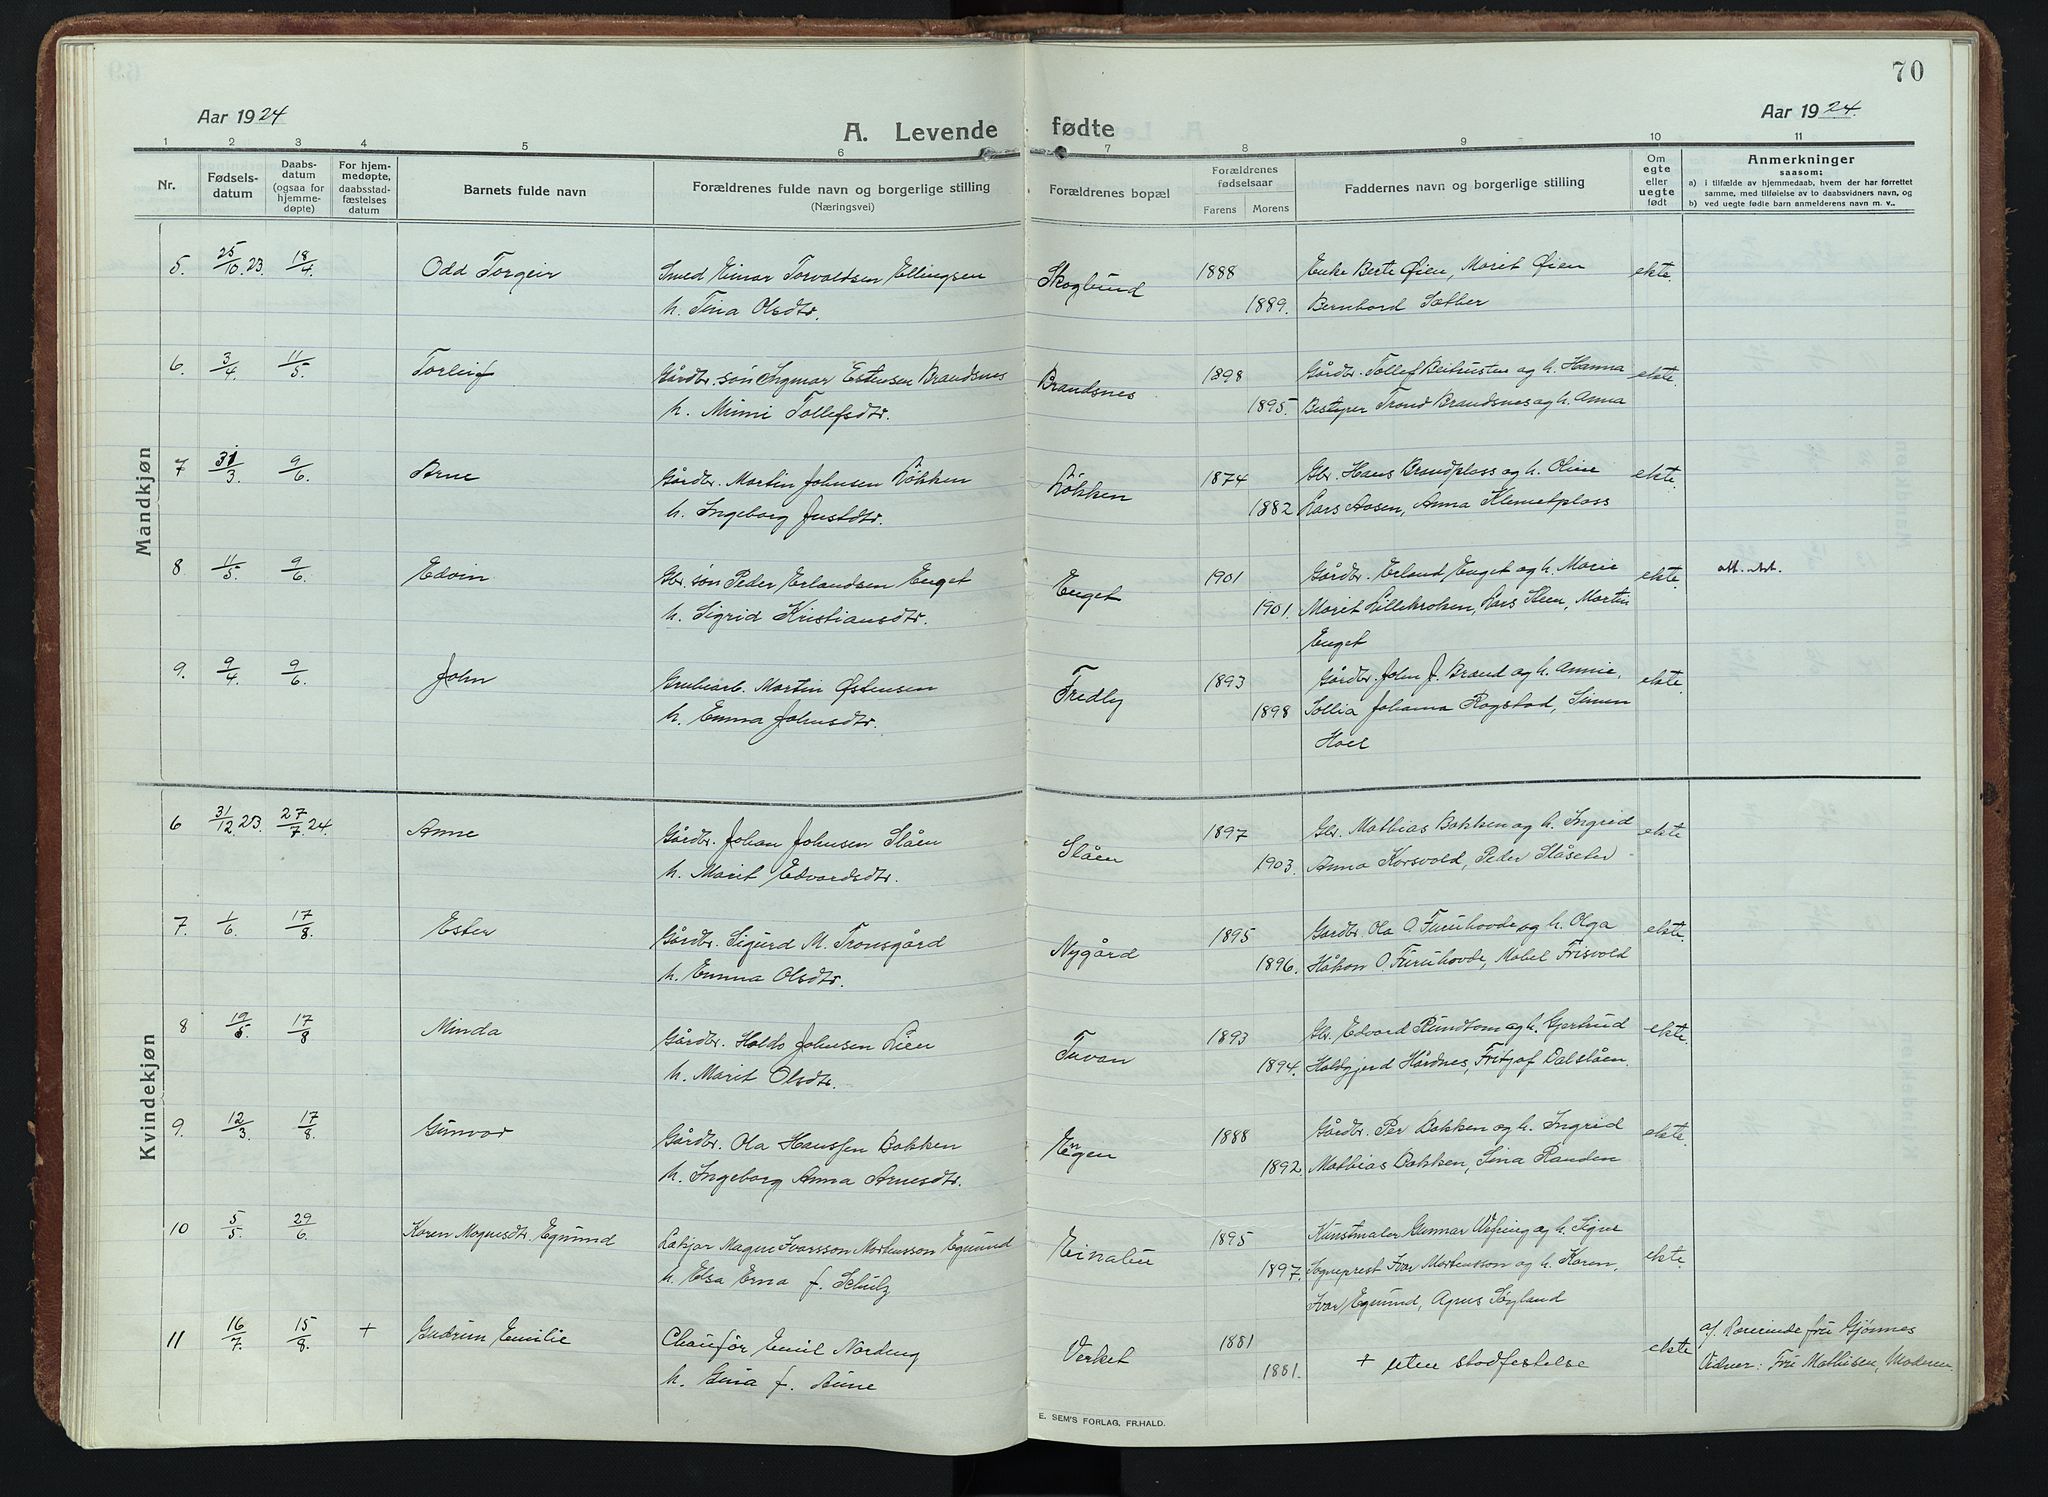 70
Aar 1924
Aar 1924.
A. Levende fødte
1 2 3 4 5 6 7 8 9 10 11
Nr.
Fødsels-
datum
Daabs-
datum
(ogsaa for
hjemme-
døpte)
For hjem-
medøpte,
daabsstad-
fæstelses
datum
Barnets fulde navn
Forældrenes fulde navn og borgerlige stilling
(Næringsvei)
Forældrenes bopæl
Forældrenes
fødselsaar
Farens Morens
Faddernes navn og borgerlige stilling
Om
egte
eller
uegte
født
Anmerkninger
saasom:
a) i tilfælde av hjemmedaab, hvem der har forrettet
samme, med tilføielse av to daabsvidners navn, og
b) ved uegte fødte barn anmelderens navn m. v..
Mandkjøn
5. 25/10.23. 18/4. Odd Torgeir Smed Einar Torvaldsen Ellingsen Skoglund 1888 Enke Berte Øien, Marit Øien ekte.
h. Tina Olsdtr. 1889. Bernhard Sæther
6. 3/4. 11/5. Torleif Gårdbr. søn Ingmar Estensen Brandsnes Brandsnes 1898 Gårdbr. Tollef Beitrusten og h. Hanna ekte.
h. Minni Tollefsdtr. 1895. Bestyrer Trond Brandsnes og h. Anna
7 31/3. 9/6. Arne Gårdbr. Martin Johnsen Løkken Løkken 1874 Gbr. Hans Brandplass og h. Oline ekte.
h. Ingeborg Justdtr. 1882 Lars Aasen, Anna Klemetplass
8 11/5. 9/6. Edvin Gbr. søn Peder Erlandsen Enget Enget 1901 Gårdbr. Erland Enget og h. Marie ekte. att. utst.
h. Sigrid Kristiansdtr. 1901. Marit Lillekroken, Lars Steen, Martin
Enget
9. 9/4 9/6. John Grubearb. Martin Østensen Fredly 1893 Gårdbr. John J. Brænd og h. Annie, ekte.
h. Emma Johnsdtr. 1898 Sollia Johanna Rogstad, Simen
Hoel
Kvindekjøn
6 31/12.23. 27/7.24. Anne Gårdbr. Johan Johnsen Slåen Slåen 1897 Gbr. Mathias Bakken og h. Ingrid ekte
h. Marit Edvardsdtr. 1903. Anna Korsvold, Peder Slåseter
7. 1/6. 17/8. Ester Gårdbr. Sigurd M. Tronsgård Nygård 1895 Gårdbr. Ola O Furuhovde og h. Olga ekte.
h. Emma Olsdtr. 1896. Håkon O Furuhovde, Mabel Frisvold
8 19/5. 17/8 Minda Gårdbr. Haldo Johnsen Lien Tuvan 1893 Gbr. Edvard Rundtom og h. Gjertrud ekte.
h. Marit Olsdtr. 1894. Haldgjerd Hårdnes, Fritjof Dalslåen.
9. 12/3. 17/8. Gunvor Gårdbr. Ola Hanssen Bakken Engen 1888 Gårdbr. Per Bakken og h. Ingrid ekte.
h. Ingeborg Anna Arnesdtr. 1892 Mathias Bakken, Sina Randen
10 5/5. 29/6. Karen Magnesdtr. Egmund Lækjar Magne Ivarsson Mortensson Egmund Einalie 1895 Kunstmaler Gunnar Wefring og h. Signe
h. Elsa Erna f. Schulz 1897. Sogneprest Ivar Mortensson og h. Karen, ekte.
Ivar Egmund, Agnes Søyland
11 16/7. 15/8. + Gudrun Emilie Chauför Emil Nordeng Verket 1881 + uten stadfestelse ekte af Lærerinde fru Gjønnes
h. Gina f. Aune 1881. Vidner: Fru Mathisen, Moderen.
E. SEM'S FORLAG, FR.HALD.